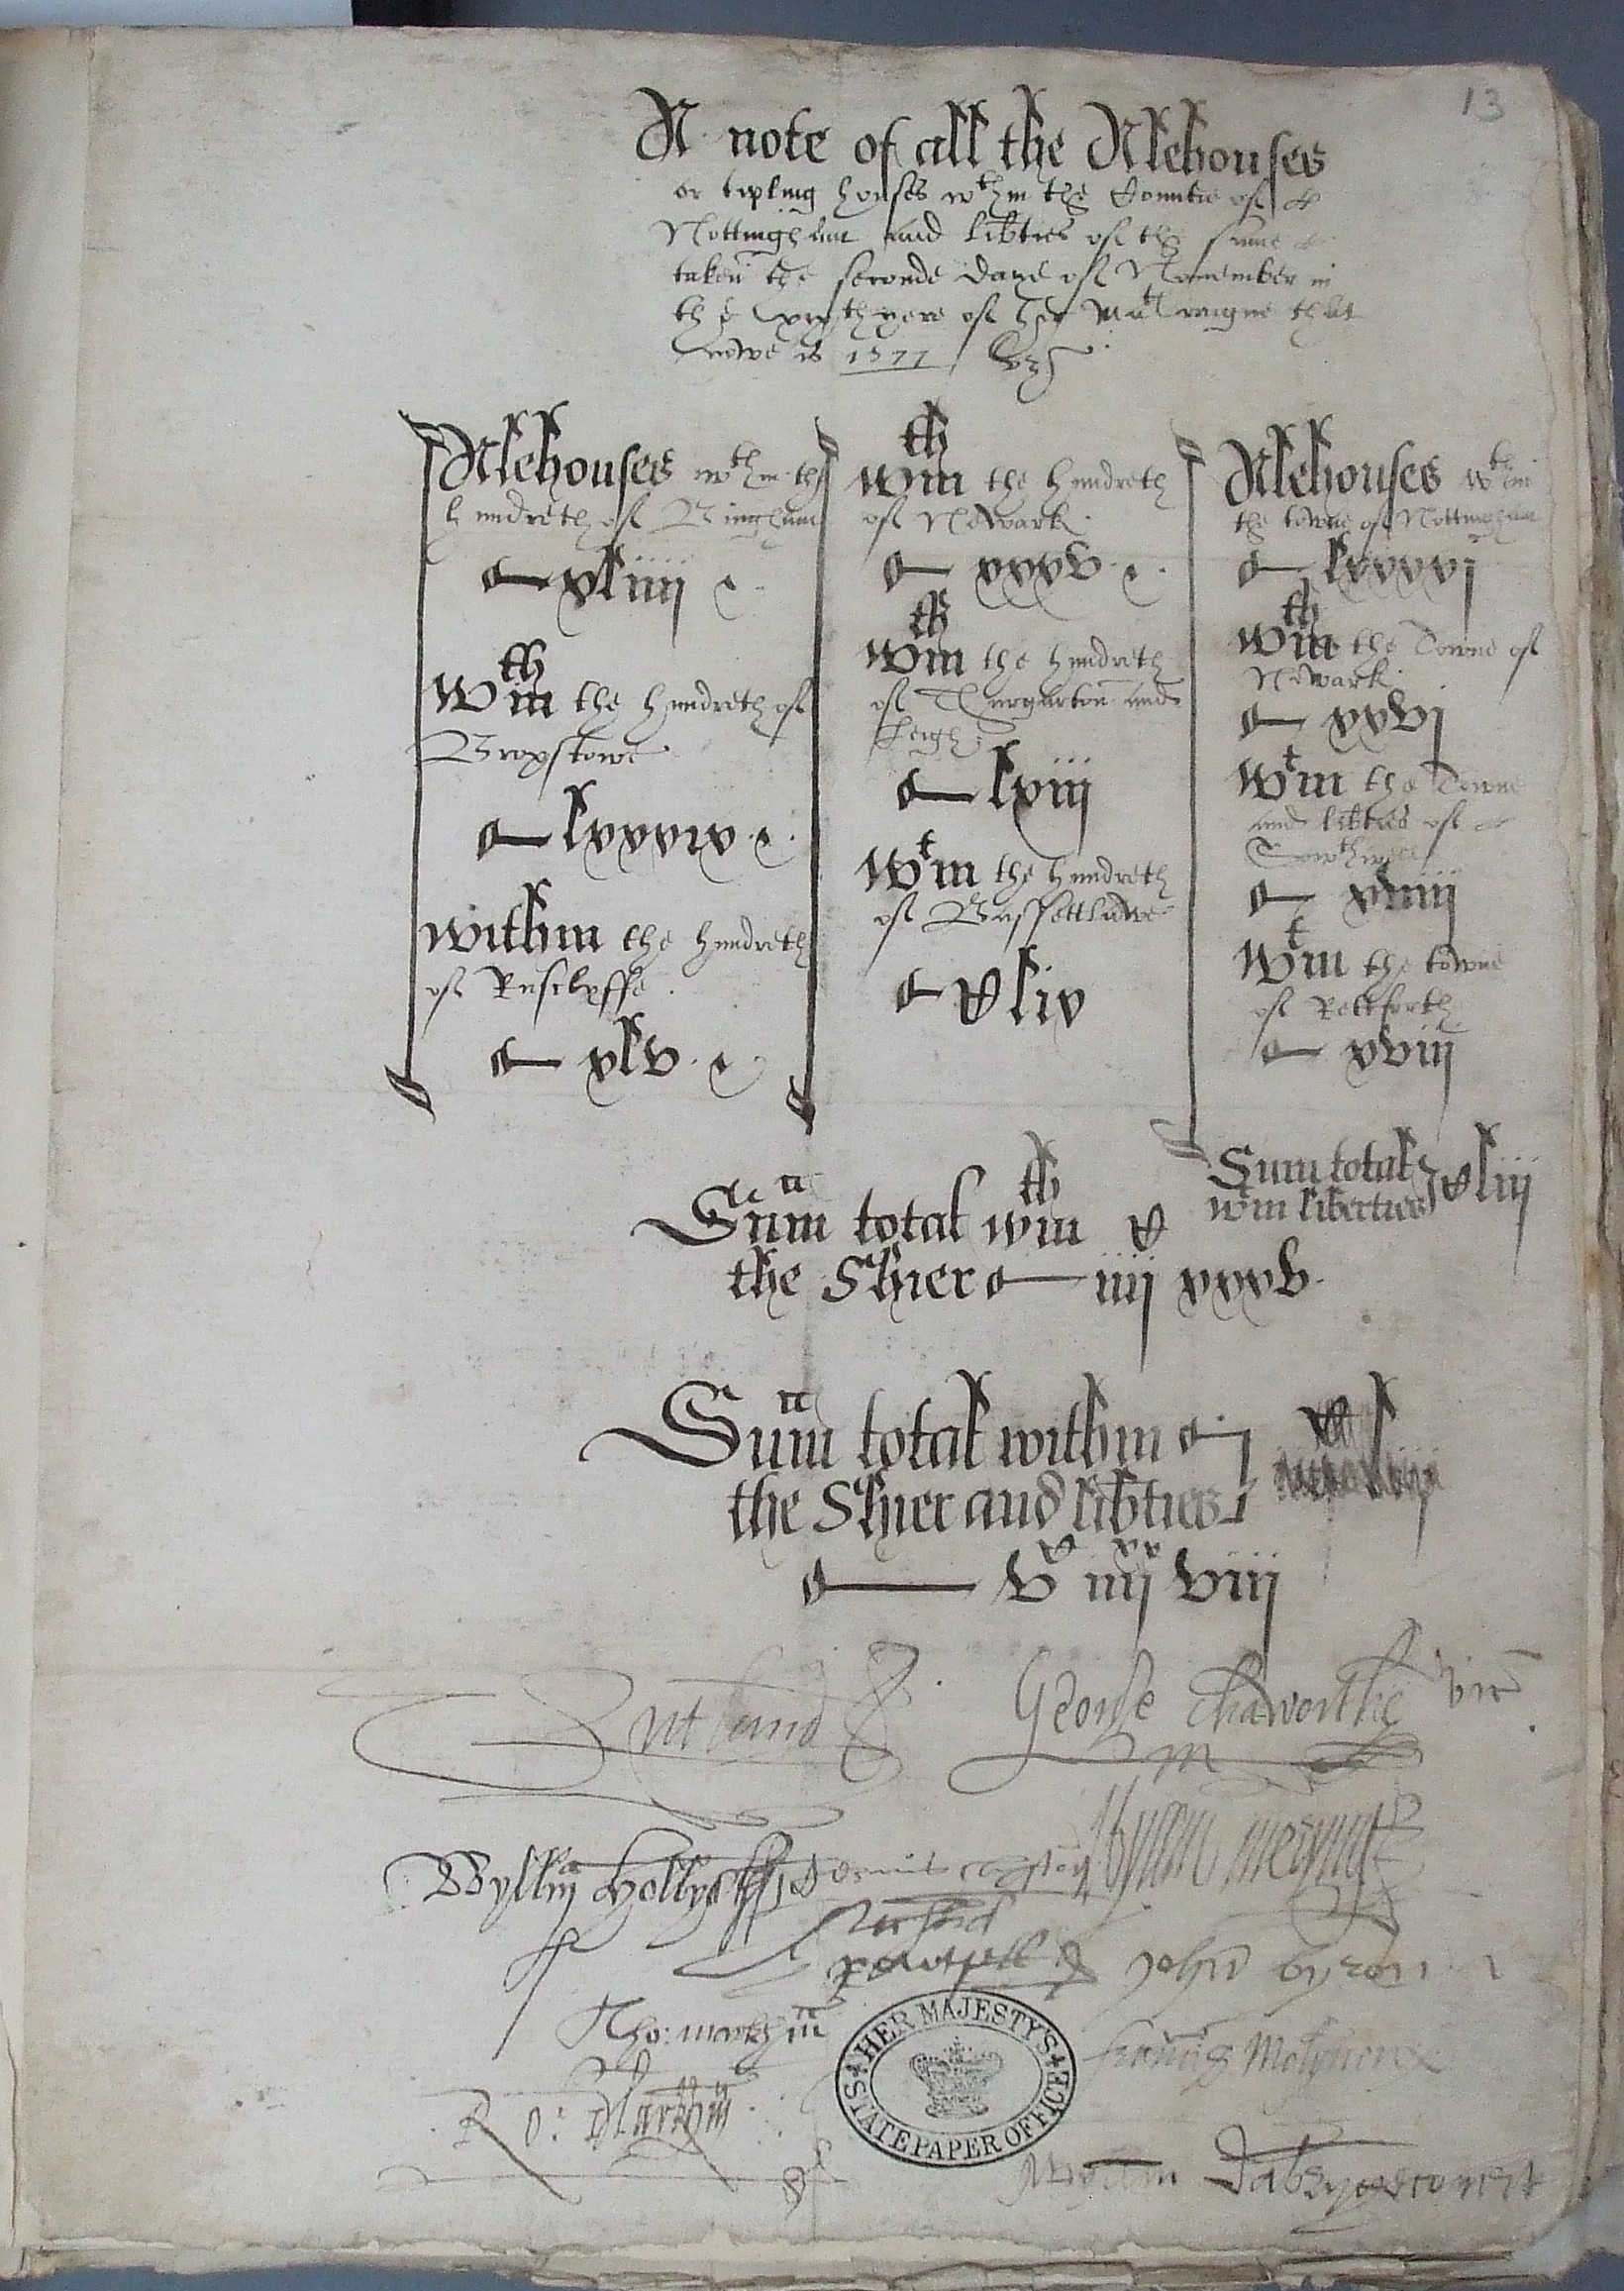 13
A note of all the Alehouses
or tipling houses wthin the Countie of
Nottingham and lib̄ties of the same
taken the seconde daye of November in
the xixth yere of her Matſ raigne that
nowe is 1577 / vz
Alehouses wthin the
hundreth of Bingham
xliiij
wthin the hundreth of
Broxstowe
lxxxix
within the hundreth
of Rusclyffe
xlv
wthin the hundreth
of Newark
xxxv
wthin the hundreth
of Thurgarton and
Leigh
lxiij
wtin the hundreth
of Bassettlawe
Clix
Alehouses wthin
the towne of Nottingham
lxxxxj
wthin the Towne of
Newark
xxvj
wtin the Towne
and lib̄ties of
Sowthwell
xviij
wtin the towne
of Rettforth
xviij
Sum total
wtin liberties Cliij
Sum̄ total wthin
the Shier iiij C xxxv
Sum̄ total within
the Shier and lib̄ties
v C iiij xx viij
Rutland
George Chaworthe vic
m
Wyllm̄ Hollys
Wyllm meryng
John byron
Tho: markhm̄
francis Molyneux
Ro: Markhm̄
HER MAJESTY'S
STATE PAPER OFFICE
Wyllm Dabrygecourt